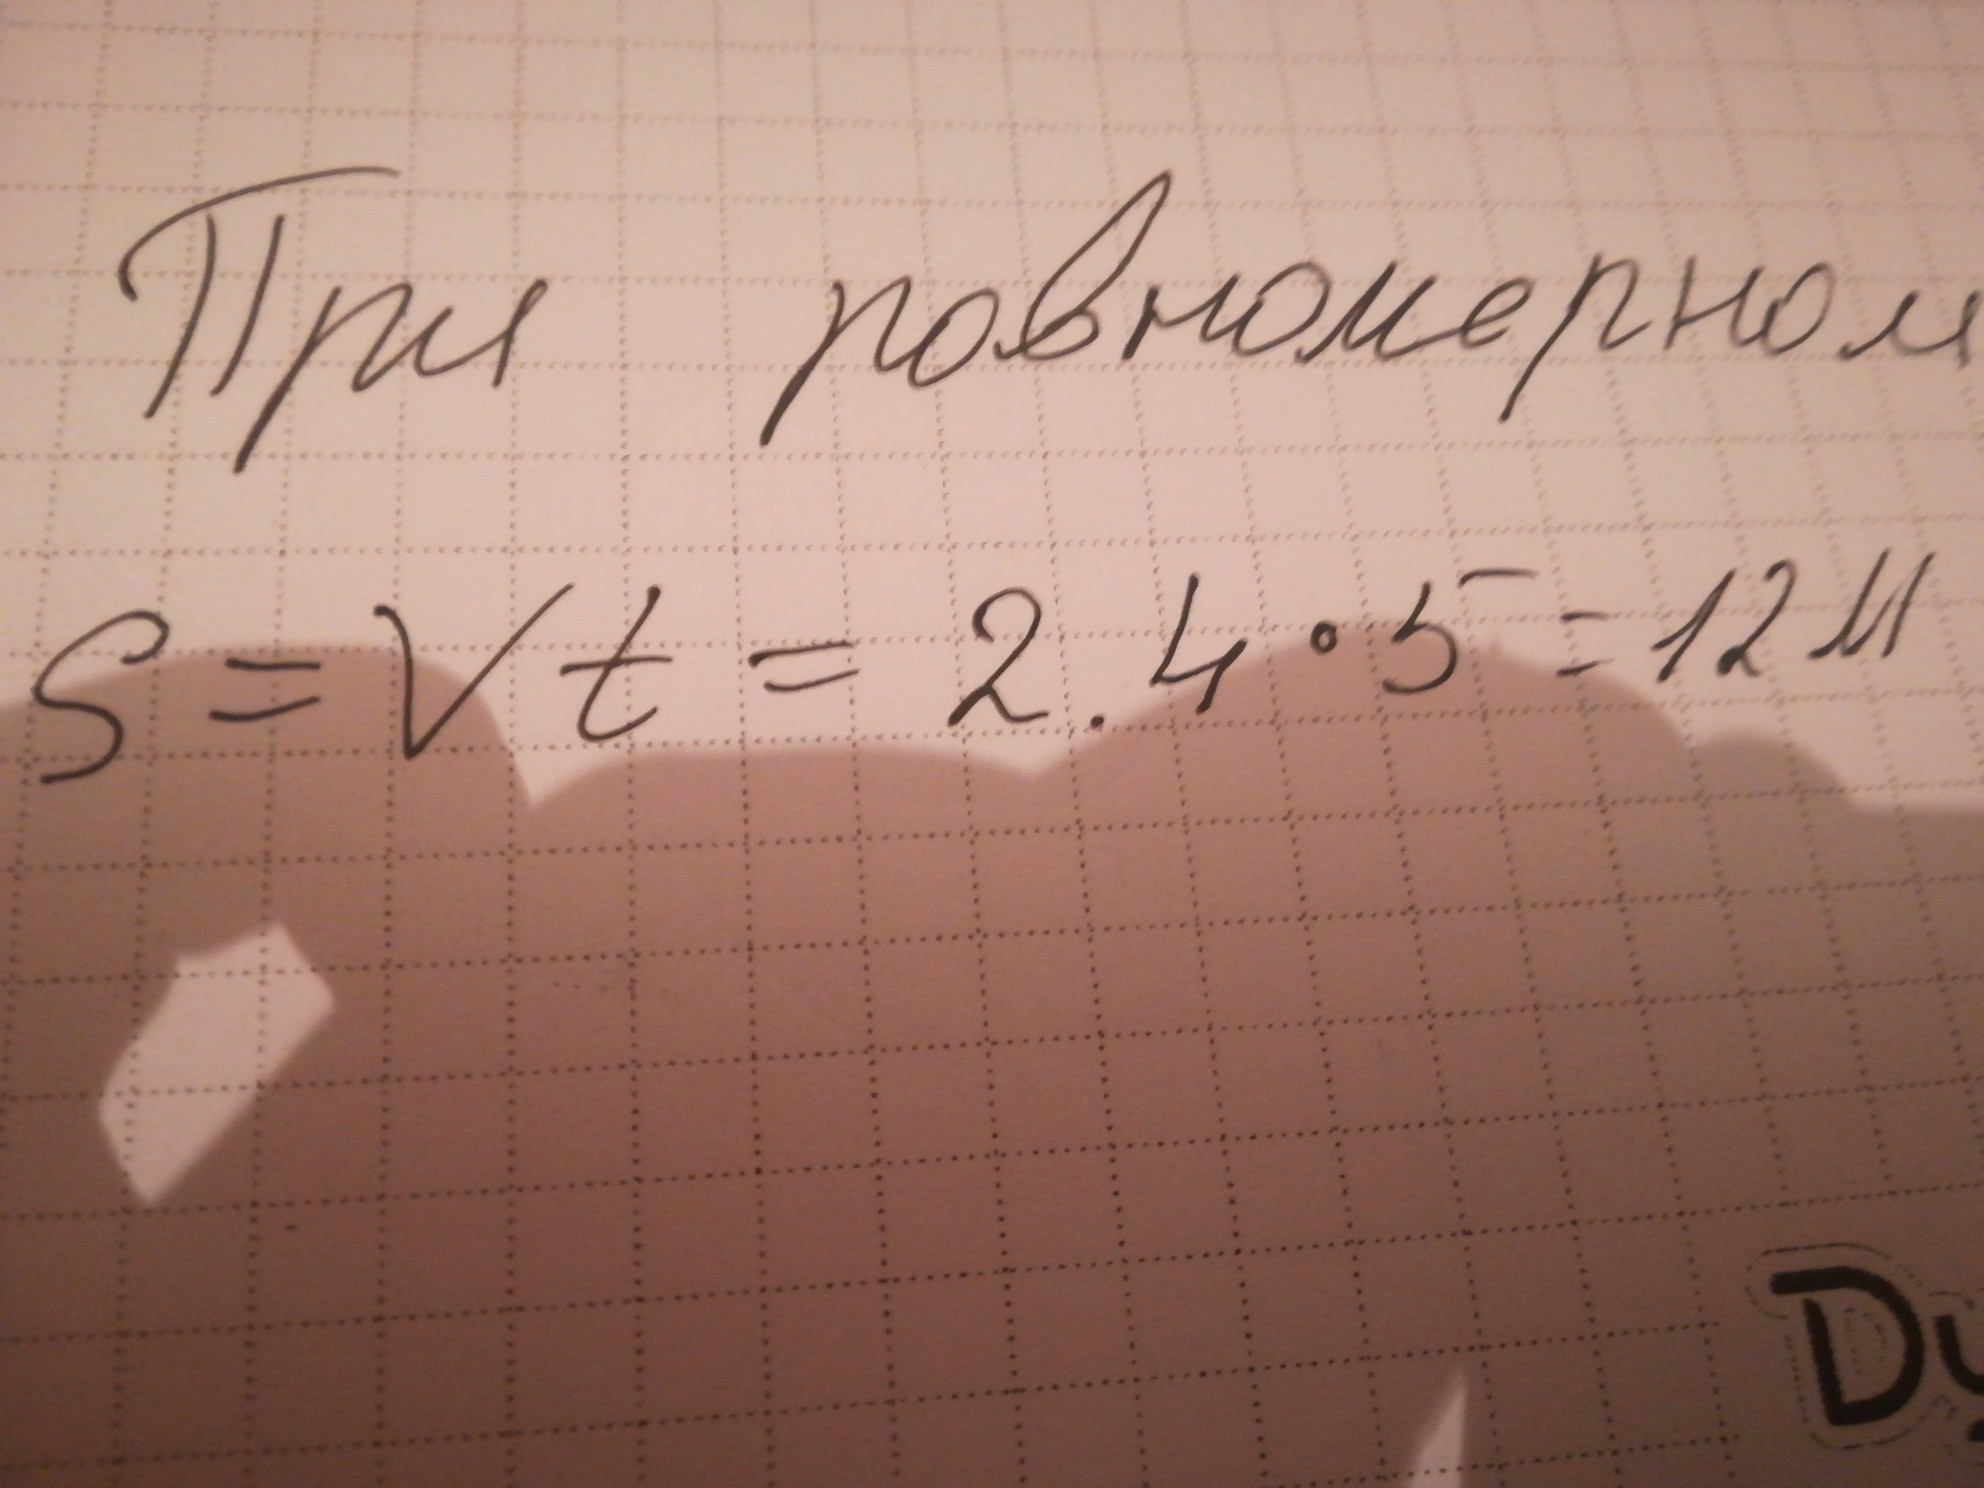 При ровномерном
S = Vt = 2.4 · 5 = 12 м
Dy